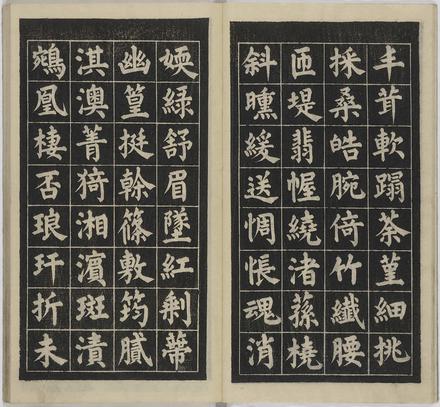 丰茸軟蹋荼菫細挑
採桑皓腕倚竹纖腰
匝堤翡幄繞渚蓀橈
斜曛緩送惆悵魂消
媆綠舒眉墜紅剩蒂
幽篁挺榦篠敷筠膩
淇澳菁猗湘濵斑漬
鵷凰棲否琅玕折未